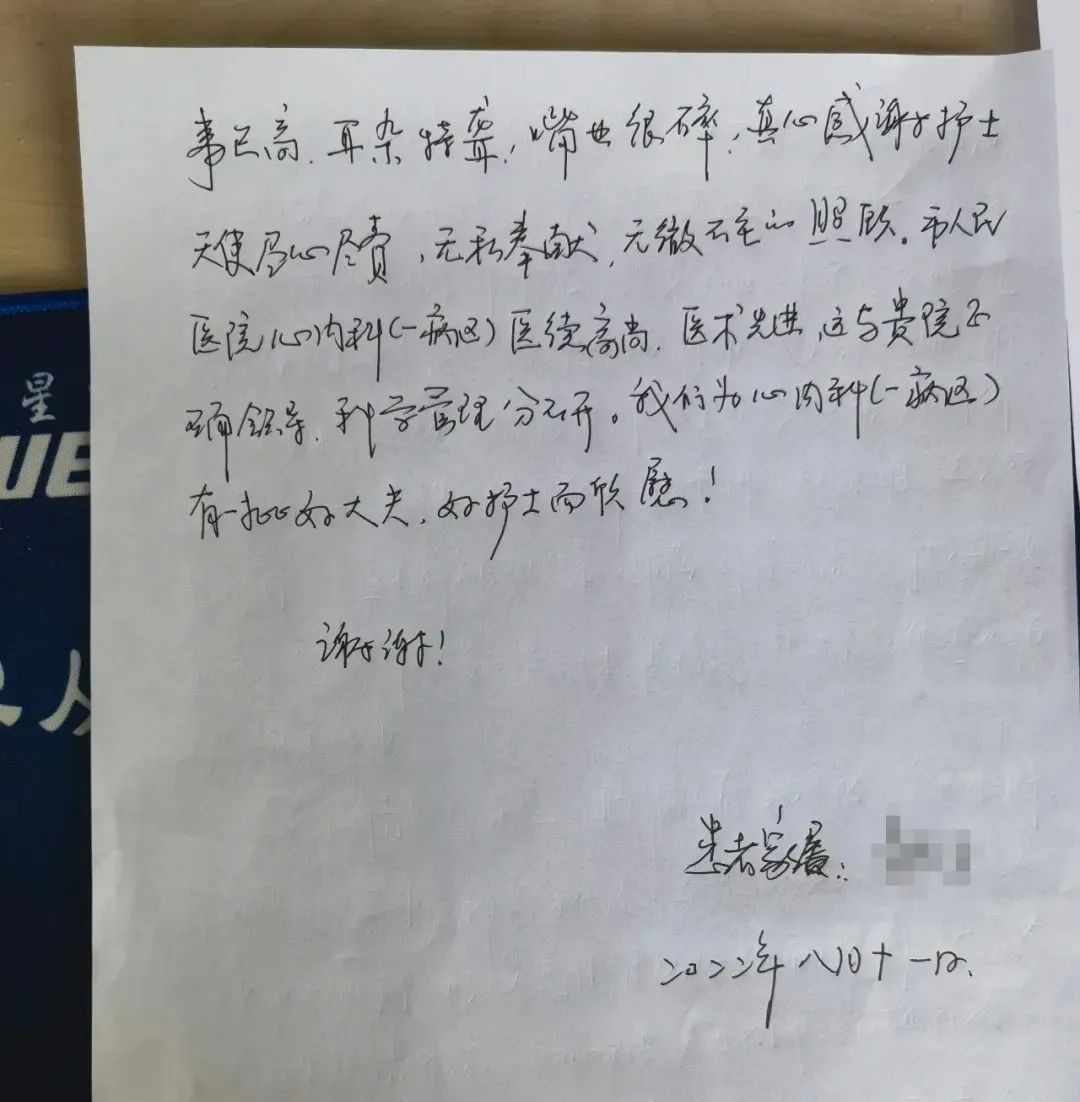 事已高、耳朵特聋，嘴也很碎，真心感谢护士
天使尽心尽责，无私奉献，无微不至的照顾。市人民
医院心内科(一病区)医德高尚、医术先进，这与贵院正
确领导、科学管理分不开。我们为心内科(一病区)
有一批好大夫、好护士而欣慰！
谢谢！
患者家属：
2022年八月十一日、
星
UE
从